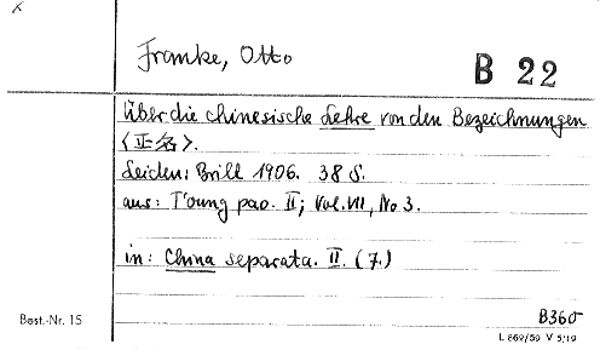 Franke, Otto
B 22
Über die chinesische Lehre von den Bezeichnungen
<正名>.
Leiden: Brill 1906. 38 S.
aus: T'oung pao. II; Vol. VII, No 3.
in: China separata. II. (7.)
B360
Best.-Nr. 15
L 869/59 V 5/19